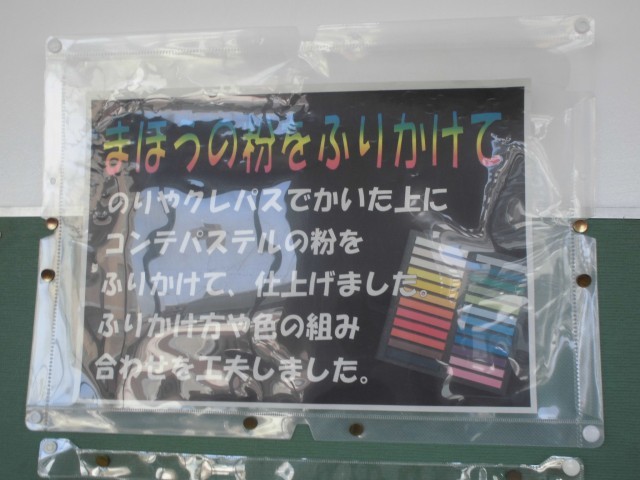 まほうの粉をふりかけて
のりやクレパスでかいた上に
コンテパステルの粉を
ふりかけて、仕上げました。
ふりかけ方や色の組み
合わせを工夫しました。